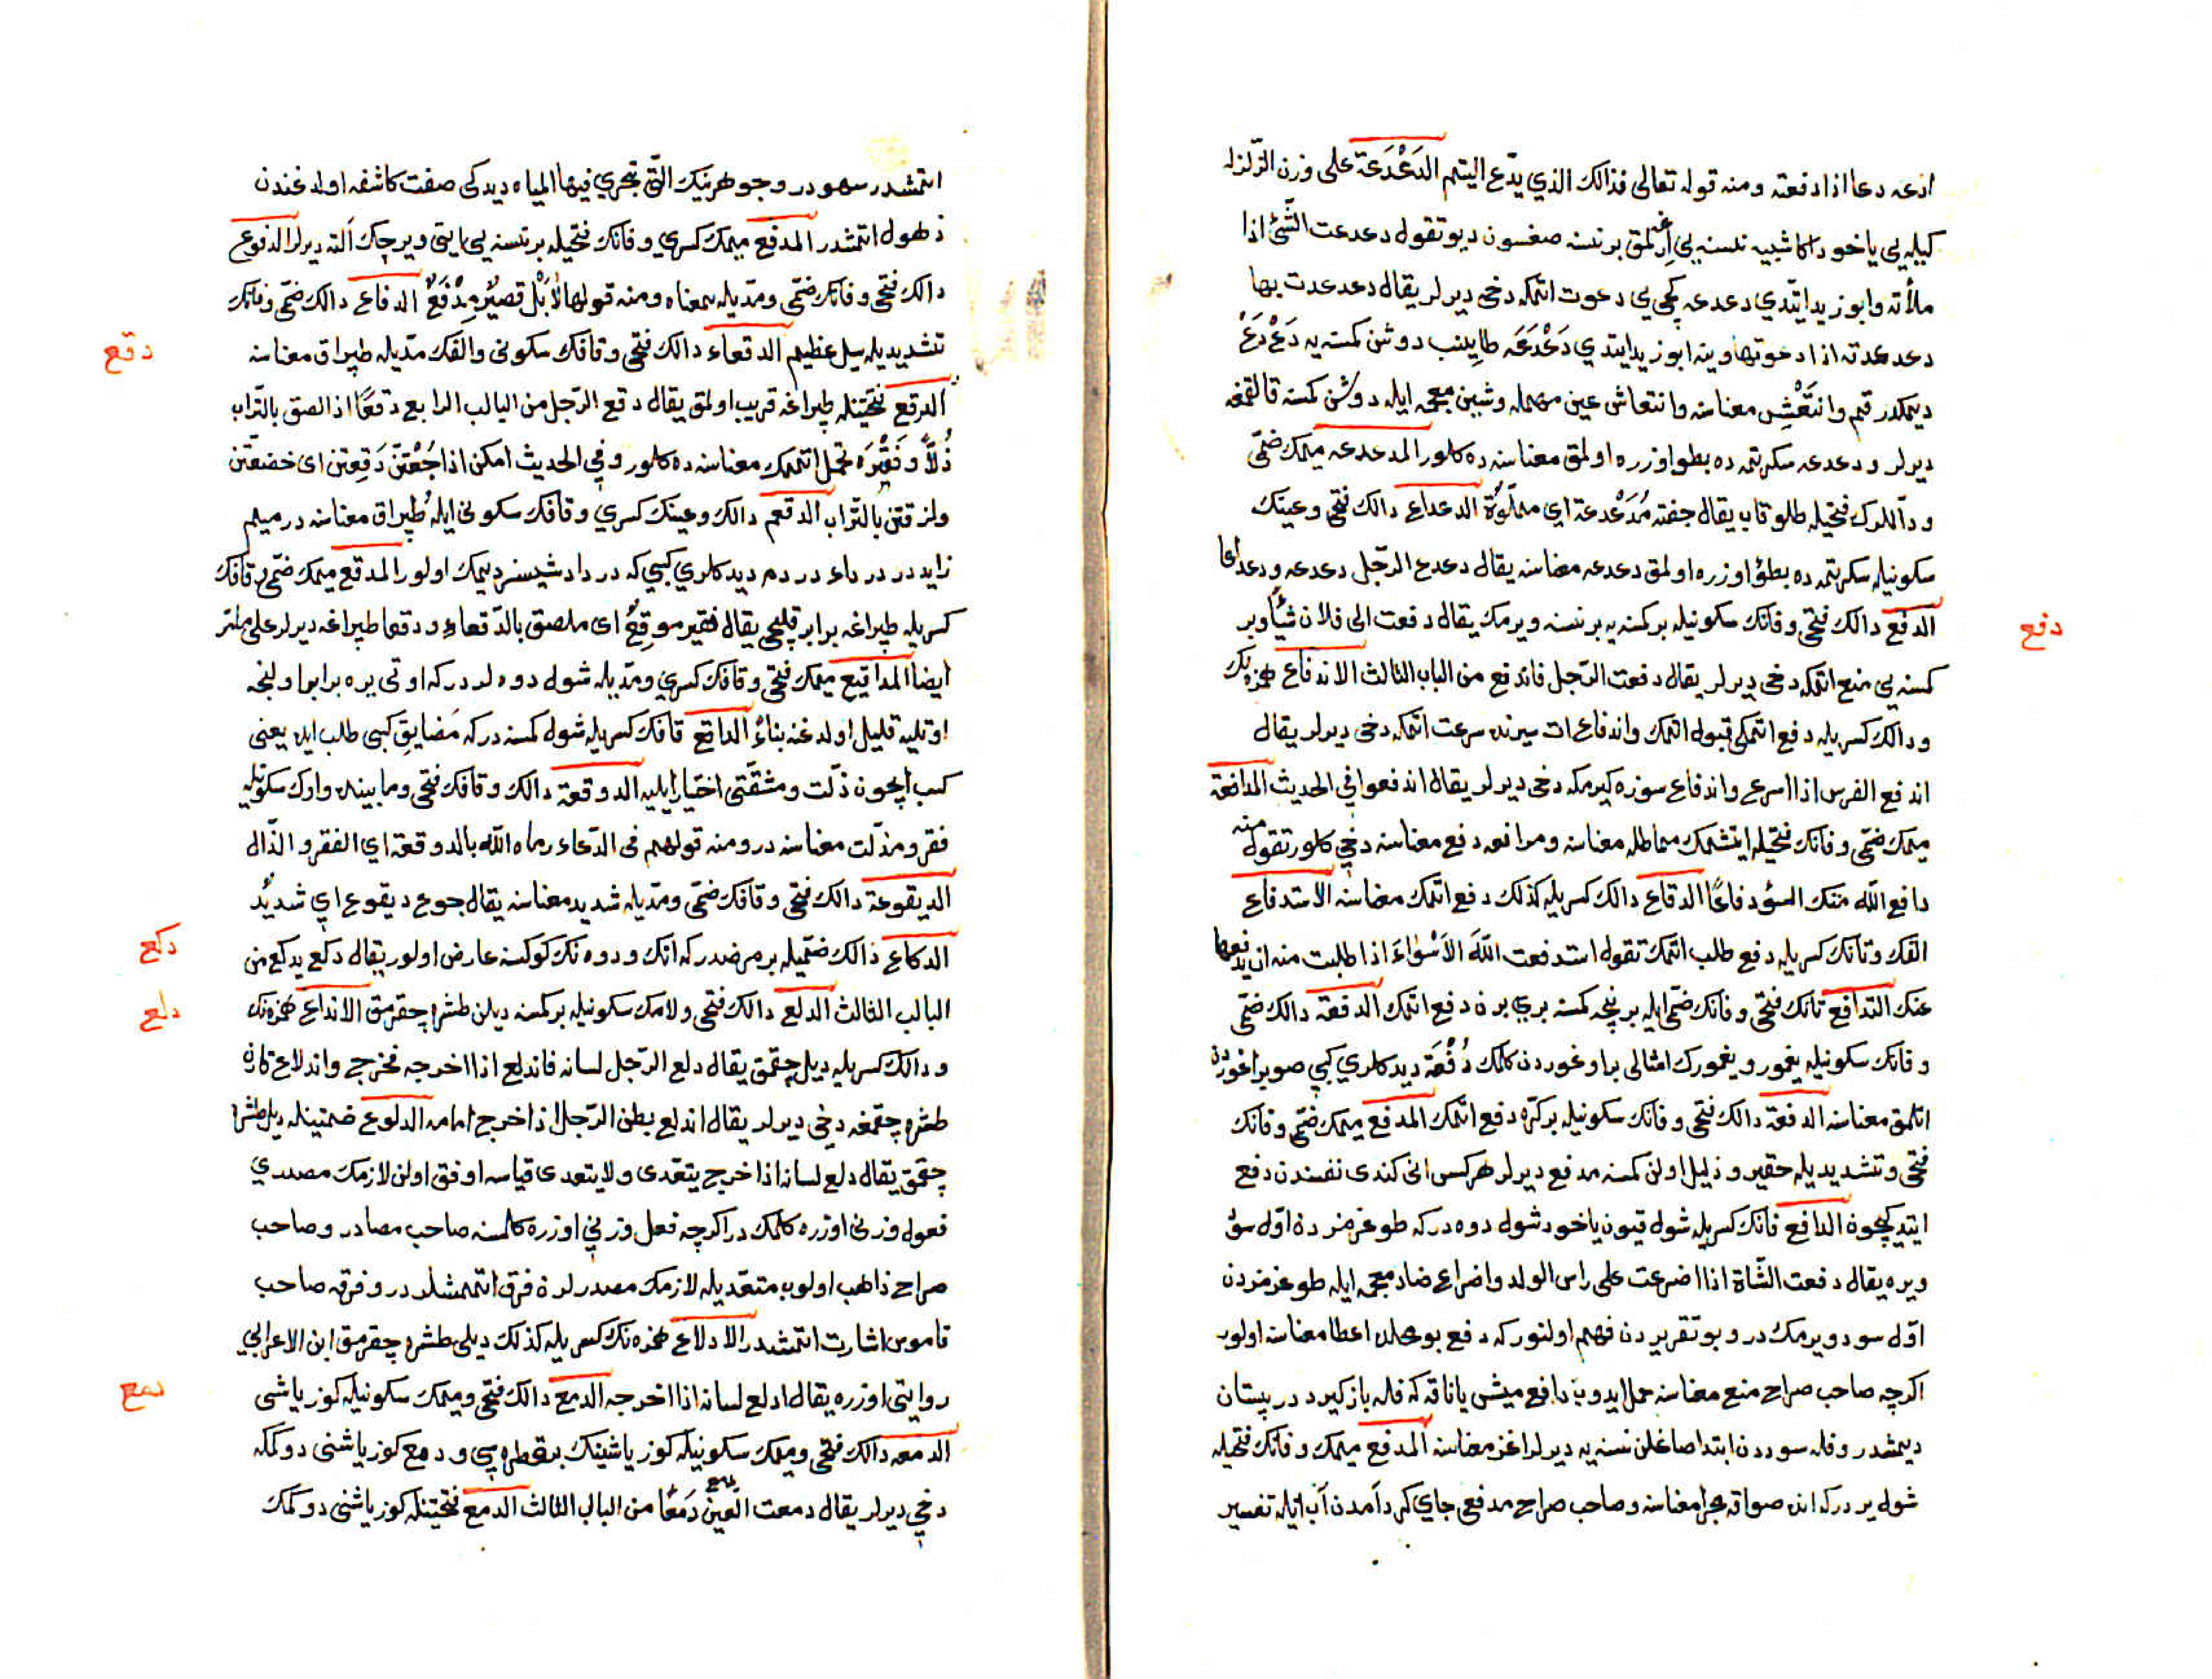 ادعه دعا اذا دفعته ومنه قوله تعالى فذالك الذي يدّع اليتيم الدَعْدَعَة على وزن الزّلزله
كيله يى ياخود اكا شبيه نسنه يى ارغه‌لمق بر نسنه صغسون ديو تقول دعدعت الشّئ اذا
ملأته وابو زيد ايتدي دعدعه كچى يى دعوت اتمكه دخى ديرلر يقال دعدعت بها
دعدعة اذا دعوتها وينه ابو زيد ايتدي دَعْدَعَه طاينب دوشن كمسنه يه دَعْ دَعْ
ديمكدر قم وانتَعْشِ معناسنه وانتعاش عين مهمله وشين معجمه ايله دوشن كمسنه قالقمغه
ديرلر ودعدعه سكرتمه ده بطو اوزره اولمق معناسنه ده كلور المدعدعه ميمك ضمّى
ودالّلرك فتحيله طلو قاب يقال جفنة مُدَعْدعة اي مملوّة الدعداع دالك فتحى وعينك
سكونيله سكرتمه ده بطؤ اوزره اولمق دعدعه معناسنه يقال دعدع الرّجل دعدعه ودعداعا
الدفع دالك فتحى وفانك سكونيله بر كمسنه يه بر نسنه ويرمك يقال دفعت الى فلان شيأً وبر
كمسنه يى منع اتمكه دخى ديرلر يقال دفعت الرّجل فاندفع من الباب الثالث الاندفاع همزه نك
ودالك كسريله دفع اتمكى قبول اتمك واندفاع ات سيرنده سرعت اتمكه دخى ديرلر يقال
اندفع الفرس اذا اسرع واندفاع سوزه كيرمكه دخى ديرلر يقال اندفعوا في الحديث المدافعة
ميمك ضمّى وفانك فتحيله ايتشمك مماطله معناسنه ومرافعه دفع معناسنه دخى كلور تقول منه
دافع اللّه عنك السّؤ دفاعًا الدفاع دالك كسريله كذلك دفع اتمك معناسنه الاستدفاع
الفك وتانك كسريله دفع طلب اتمك تقول استدفعت اللّهَ الاَسْواءَ اذا طلبت منه ان يدفعها
عنك التدافع تانك فتحى وفانك ضمّى ايله بر نيجه كمسنه بري برن دفع اتمك الدفعة دالك ضمّى
وفانك سكونيله يغمور ويغمورك امثالى بر اوغوردن كلمك دُفْعَة ديدكلري كبى صويراغوردن
اتلمق معناسنه الدفعة دالك فتحى وفانك سكونيله بر كرّه دفع اتمك المدفع ميمك ضمّى وفانك
فتحى وتشديديله حقير وذليل اولن كمسنه مدفع ديرلر هركس انى كندى نفسندن دفع
ايتديكيچون الدافع فانك كسريله شول قيون ياخود شول دوه دركه طوغرمزدن اوّل سؤ
ويره يقال دفعت الشّاة اذا اضرعت على راس الولد واضراع ضاد معجمه ايله طوغرمزدن
اوّل سود ويرمكدر وبو تقريردن فهم اولنوركه دفع بو محلده اعطا معناسنه اولور
اكرچه صاحب صراح منع معناسنه حمل ايدوب دافع ميش يا ناقه كه فله باز كيرد در پستان
ديمشدر وفله سوددن ابتدا صاغلن نسنه يه ديرلر اغز معناسنه المدفع ميمك وفانك فتحيله
شول يردركه انده صو اقه مجرا معناسنه وصاحب صراح مدفعى جاي كرد آمدن آب ايله تفسير
دفع
اتمشدر سهودر وجوهرينك الّتى تجري فيها المياه ديدكى صفت كاشفه اولدغندن
ذهول اتمشدر المدفع ميمك كسري وفانك فتحيله بر نسنه يى ايتى ويرچك آلته ديرلر الدفوع
دالك فتحى وفانك ضمّى ومدّيله بمعناه ومنه قولها لاٰ بَلْ قصيرٌ مِدْفَعٌ الدفاع دالك ضمّى وفانك
تشديديله سيل عظيم الدقعاء دالك فتحى وقافك سكونى والفك مدّيله طپراق معناسنه
الدقع فتحيتله طپراغه قريب اولمق يقال دقع الرّجل من الباب الرابع دقعًا اذا الصق بالتّراب
ذُلاًّ وفَقْرَه تحمل اتمك معناسنه ده كلور وفي الحديث امكن اذا جُعْتنّ دَقِعتن اى خضعتن
ولزقتن بالتّراب الدقعم دالك وعينك كسري وقافك سكونى ايله طپراق معناسنه در ميم
زايددر درداء دردم ديدكلري كبى كه درداد شيسز ديمك اولور المدقع ميمك ضمّى وقافك
كسريله طپراغه برابر قلنجى يقال فقير موقِعٌ اى ملصق بالدّقعاء ودقعا طپراغه ديرلر على مامرّ
ايضا المداقيع ميمك فتحى وقافك كسري ومدّيله شول دوه لردركه اوتى يره برابر اولنجه
اوتليه قليل اولدغنه بناءً الداقع قافك كسريله شول كمسنه دركه مُضايق كبى طلب ايده يعنى
كسب ايچون ذلّت ومشقّتى اختيار ايليه الدوقعة دالك وقافك فتحى ومابينده واوك سكونيله
فقر ومذلّت معناسنه در ومنه قولهم فى الدّعاء رماه اللّه بالدوقعة اي الفقر والذّل
الديقوعة دالك فتحى وقافك ضمّى ومدّيله شديد معناسنه يقال جوع ديقوع اي شديدٌ
الدكاع دالك ضمّيله بر مرضدركه اتك ودوه نك كوكسنه عارض اولور يقال دكع يدكع من
الباب الثالث الدلع دالك فتحى ولامك سكونيله بر كمسنه ديلن طشره چقرمق الاندلاع همزه نك
ودالك كسريله ديل چقمق يقال دلع الرّجل لسانه فاندلع اذا اخرجه فخرج واندلاع قارن
طشره چقمغه دخى ديرلر يقال اندلع بطن الرّجل اذا خرج امامه الدلوع ضمتينله ديل طشره
چقمق يقال دلع لسانه اذا خرج يتعدّى ولا يتعدى قياسه اوفق اولن لازمك مصدري
فعول وزنى اوزره كلمكدر اكرچه فعل وزني اوزره كلمسنه صاحب مصادر وصاحب
صراح ذاهب اولوب متعدّيله لازمك مصدرلرن فرق اتممشلردر وفرقه صاحب
قاموس اشارت اتمشدر الادلاع همزه نك كسريله كذلك ديلى طشره چقرمق ابن الاعرابي
روايتى اوزره يقال ادلع لسانه اذا اخرجه الدمع دالك فتحى وميمك سكونيله كوز ياشى
الدمعه دالك فتحى وميمك سكونيله كوز ياشينك بر قطره سي ودمع كوز ياشنى دوكمكه
دخي ديرلر يقال دمعت العين تدمع دَمْعًا من الباب الثالث الدمع فتحيتله كوز ياشنى دوكمك
دقع
دكع
دلع
دمع